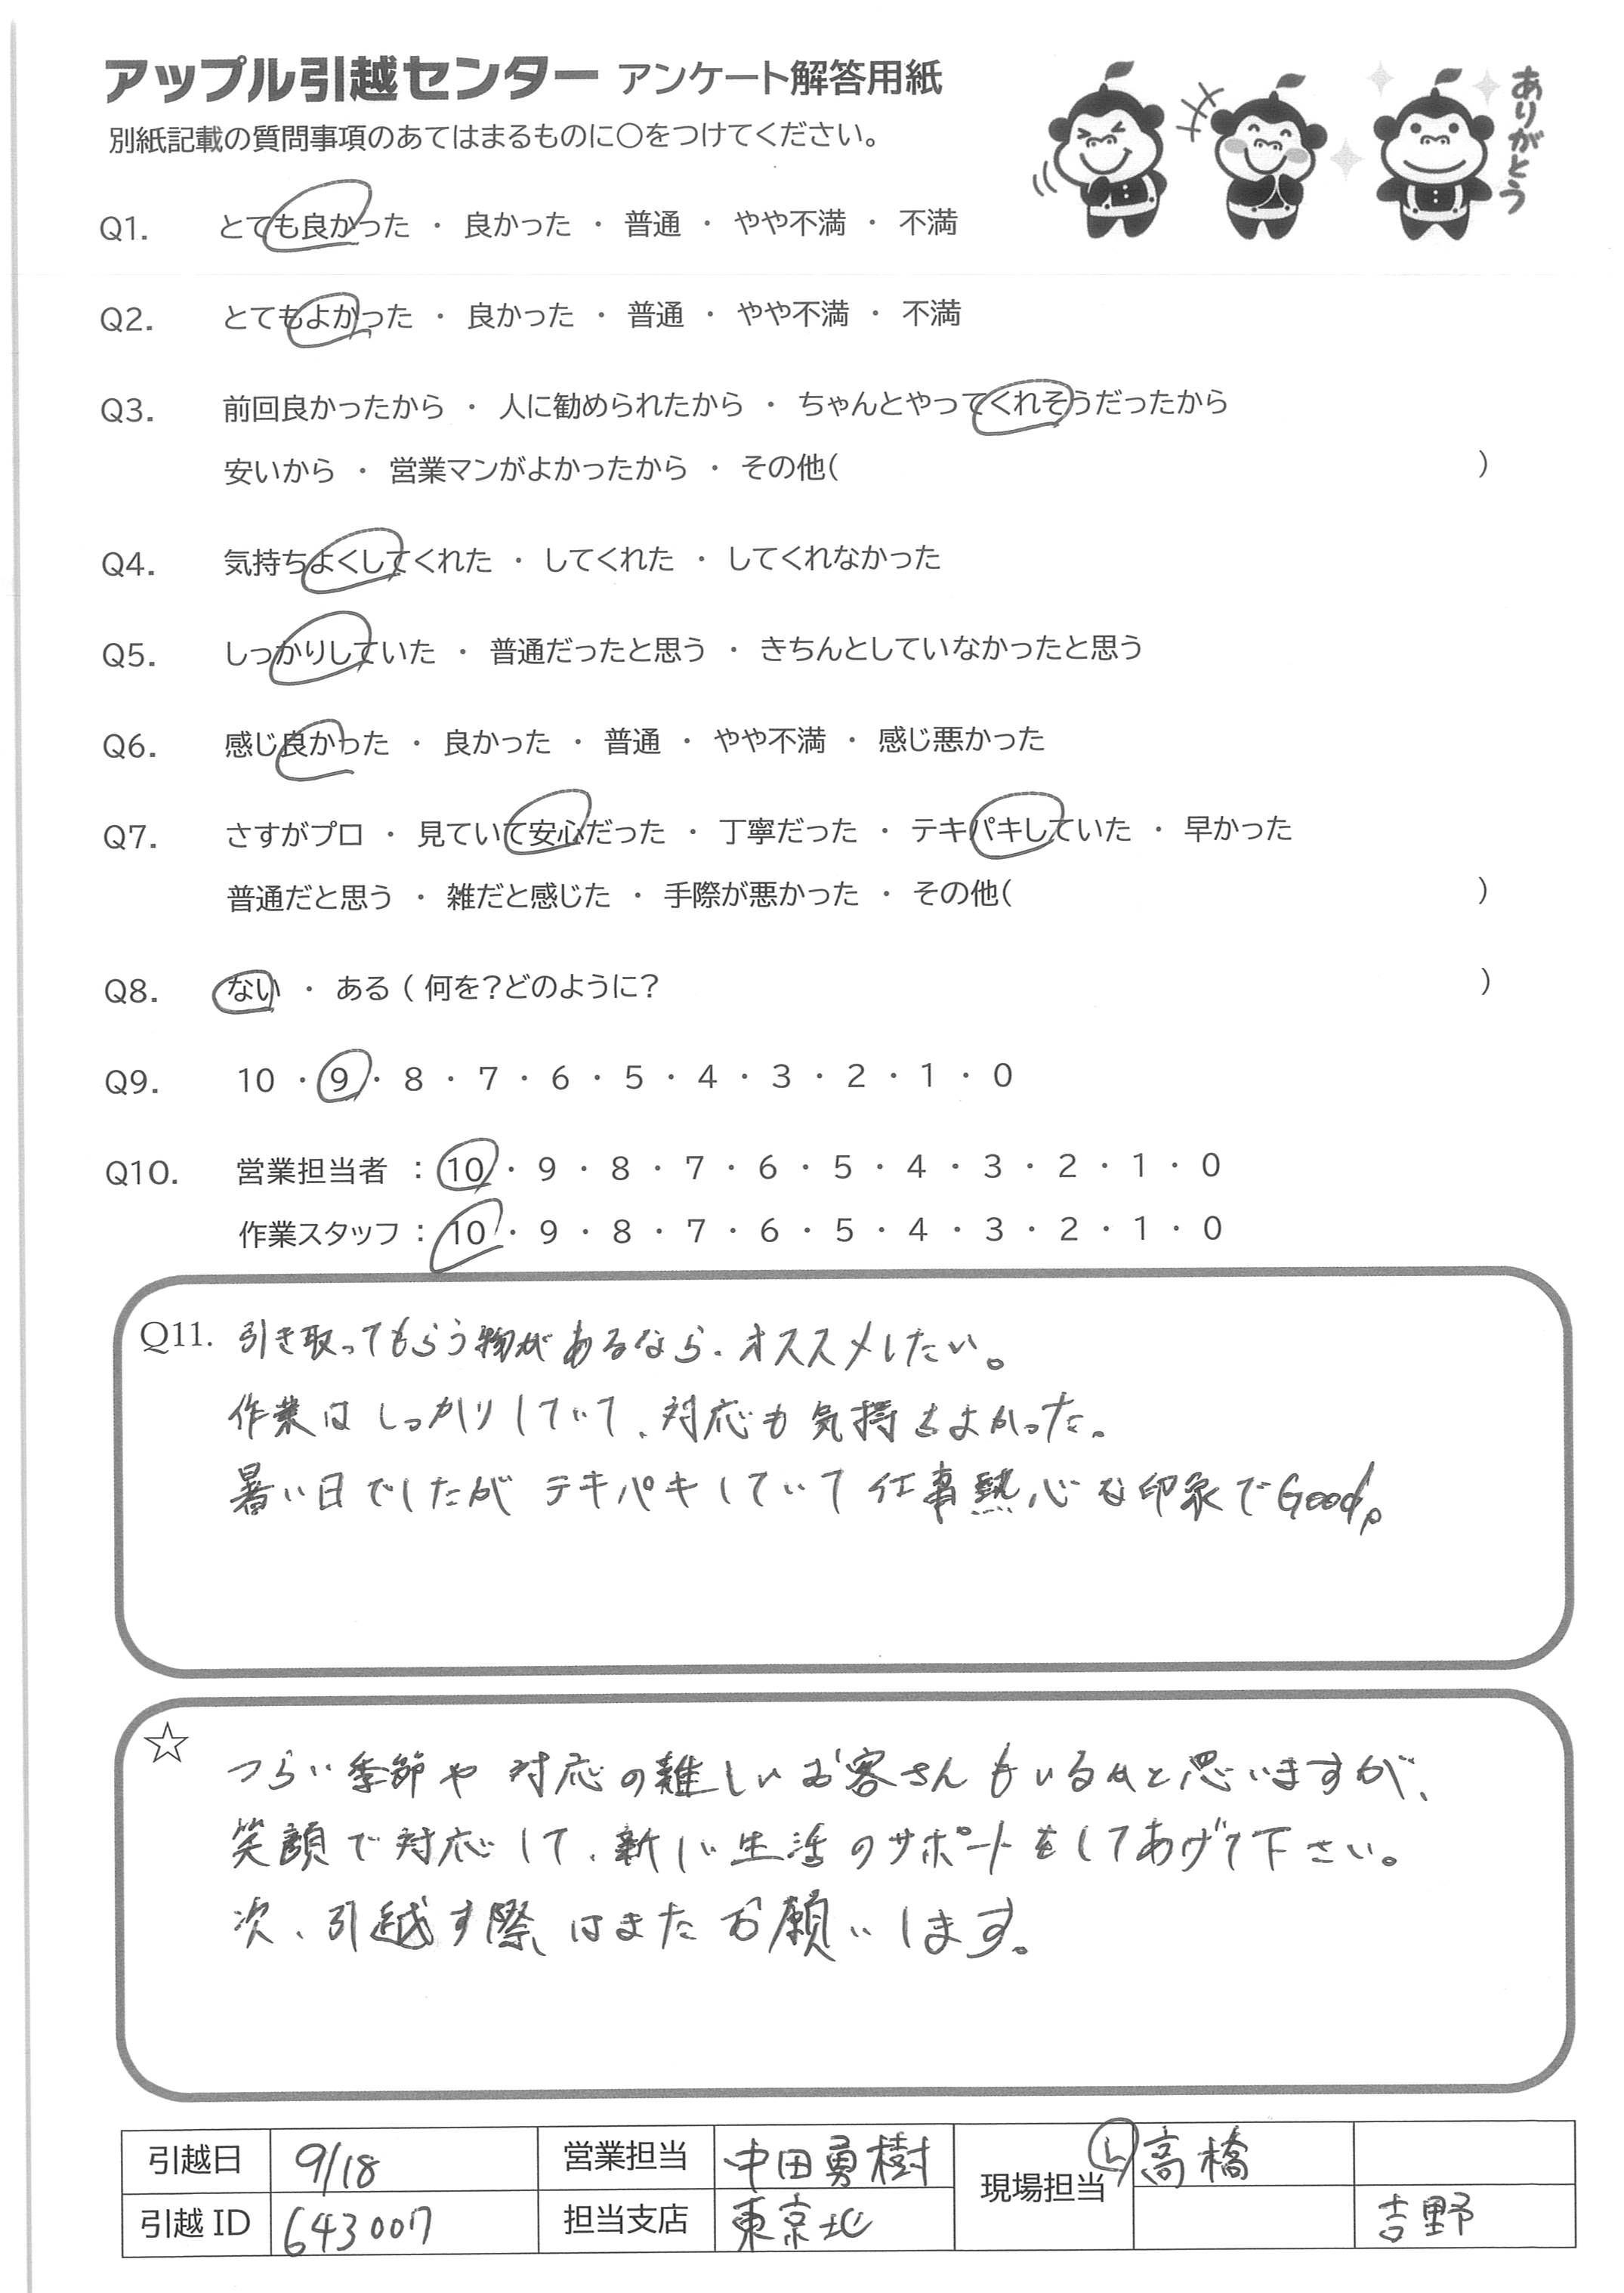 アップル引越センター アンケート解答用紙
別紙記載の質問事項のあてはまるものに〇をつけてください。
ありがとう
Q1. とても良かった ・ 良かった ・ 普通 ・ やや不満 ・ 不満
Q2. とてもよかった ・ 良かった ・ 普通 ・ やや不満 ・ 不満
Q3. 前回良かったから ・ 人に勧められたから ・ ちゃんとやってくれそうだったから
安いから ・ 営業マンがよかったから ・ その他( )
Q4. 気持ちよくしてくれた ・ してくれた ・ してくれなかった
Q5. しっかりしていた ・ 普通だったと思う ・ きちんとしていなかったと思う
Q6. 感じ良かった ・ 良かった ・ 普通 ・ やや不満 ・ 感じ悪かった
Q7. さすがプロ ・ 見ていて安心だった ・ 丁寧だった ・ テキパキしていた ・ 早かった
普通だと思う ・ 雑だと感じた ・ 手際が悪かった ・ その他( )
Q8. ない ・ ある ( 何を？どのように？ )
Q9. 10 ・ 9 ・ 8 ・ 7 ・ 6 ・ 5 ・ 4 ・ 3 ・ 2 ・ 1 ・ 0
Q10. 営業担当者 : 10 ・ 9 ・ 8 ・ 7 ・ 6 ・ 5 ・ 4 ・ 3 ・ 2 ・ 1 ・ 0
作業スタッフ : 10 ・ 9 ・ 8 ・ 7 ・ 6 ・ 5 ・ 4 ・ 3 ・ 2 ・ 1 ・ 0
Q11. 引き取ってもらう物があるなら、オススメしたい。
作業はしっかりしていて、対応も気持ちよかった。
暑い日でしたがテキパキしていて仕事熱心な印象でGood。
☆ つらい季節や対応の難しいお客さんもいるかと思いますが、
笑顔で対応して、新しい生活のサポートをしてあげて下さい。
次、引越す際はまたお願いします。
引越日 9/18 営業担当 中田勇樹 現場担当 L 高橋
引越ID 643007 担当支店 東京北 吉野